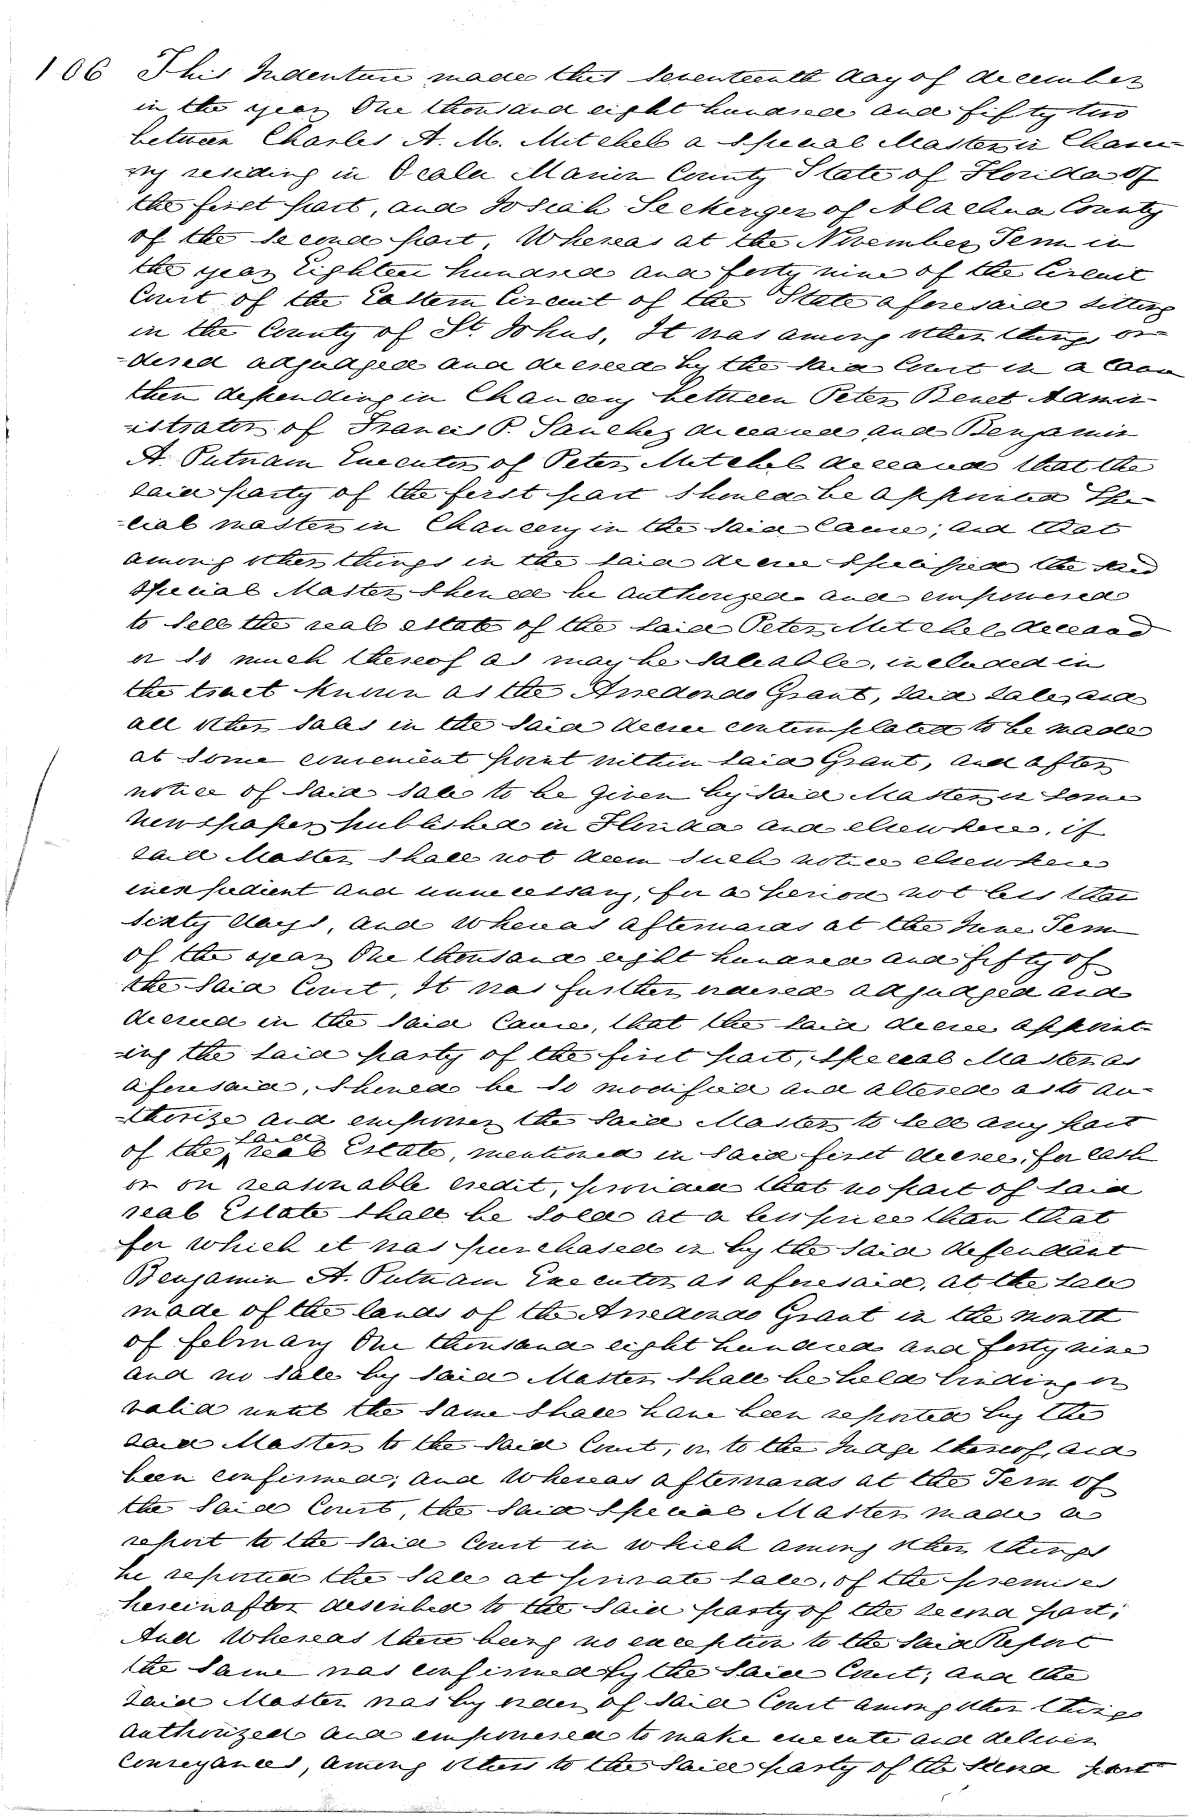 106 This Indenture made this Seventeenth day of december
in the year One thousand eight hundred and fifty two
between Charles A. M. Mitchel a Special Master in Chance-
ry residing in Ocala Marion County State of Florida of
the first part, and Josiah Seckenger of Alachua County
of the Second part, Whereas at the November Term in
the year Eighteen hundred and forty nine of the Circuit
Court of the Eastern Circuit of the State aforesaid sitting
in the County of St. Johns, It was among other things or-
-dered adjudged and decreed by the said Court in a Cause
then depending in Chancery between Peter Benet Admin-
-istrator of Francis P. Sanchez deceased and Benjamin
A. Putnam Executor of Peter Mitchel deceased that the
said party of the first part should be appointed Spe-
-cial master in Chancery in the said Cause; and that
among other things in the said decree specified the said
Special Master should be authorized and empowered
to sell the real estate of the said Peter Mitchel deceased
or so much thereof as may be saleable, included in
the tract known as the Arredondo Grant, said sale, and
all other sales in the said decree contemplated to be made
at some convenient point within said Grant, and after
notice of said sale to be given by said Master in some
Newspaper published in Florida and elsewhere, if
said Master shall not deem such notice elsewhere
inexpedient and unnecessary, for a period not less than
sixty days, and Whereas afterwards at the June Term
of the year One thousand eight hundred and fifty of
the said Court, It was further ordered adjudged and
decreed in the said Cause, that the said decree appoint-
-ing the said party of the first part, Special Master as
aforesaid, should be so modified and altered as to au-
-thorize and empower the said Master to sell any part
of the said real Estate, mentioned in said first decree, for cash
or on reasonable credit, provided that no part of said
real Estate shall be sold at a less price than that
for which it was purchased in by the said defendant
Benjamin A. Putnam Executor as aforesaid, at the sale
made of the lands of the Arredondo Grant in the month
of february One thousand eight hundred and forty nine
and no sale by said Master shall be held binding or
valid until the same shall have been reported by the
said Master to the said Court, or to the Judge thereof, and
been confirmed; and Whereas afterwards at the Term of
the said Court, the said Special Master made a
report to the said Court in which among other things
he reported the sale at private sale, of the premises
hereinafter described to the said party of the second part;
And Whereas there being no exception to the said Report
the same was confirmed by the said Court; and the
said Master was by order of said Court among other things
authorized and empowered to make execute and deliver
conveyances, among others to the said party of the second part